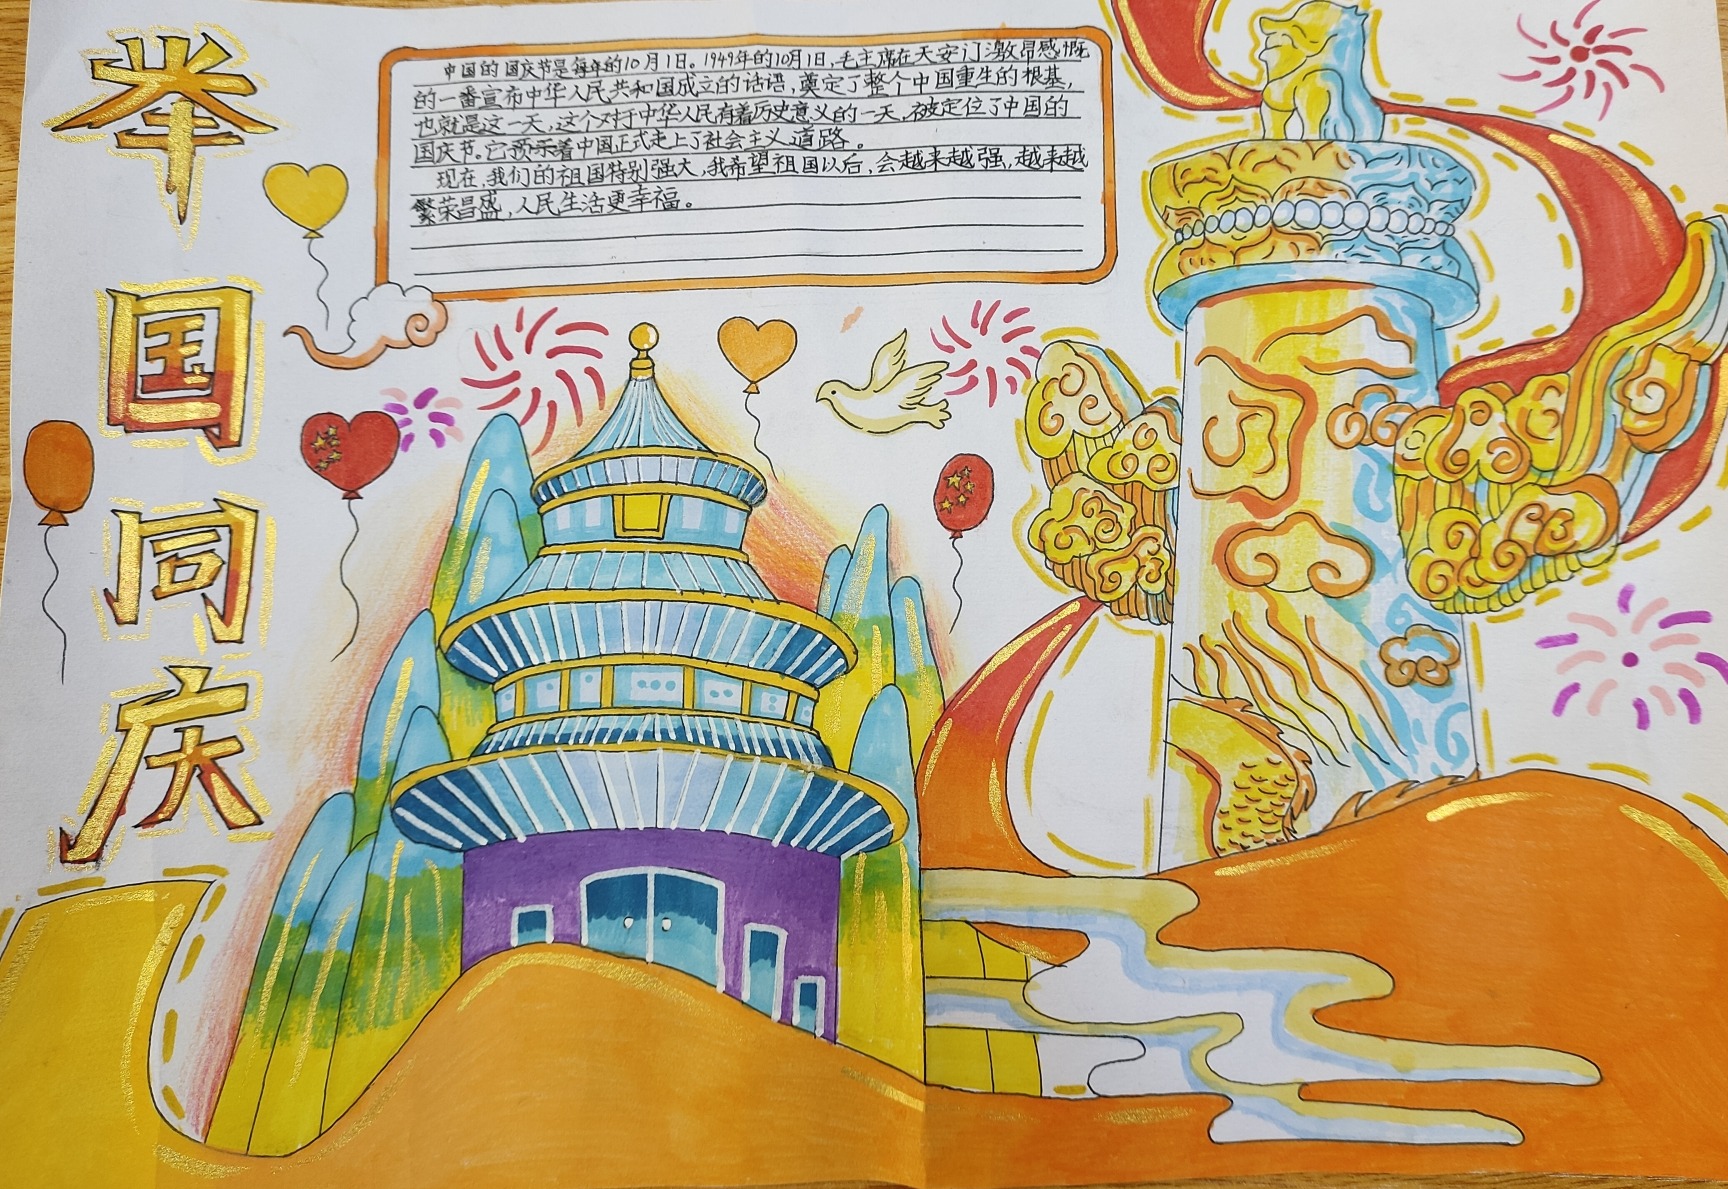 举国同庆
中国的国庆节是每年的10月1日。1949年的10月1日,毛主席在天安门激昂感慨
的一番宣布中华人民共和国成立的话语,奠定了整个中国重生的根基,
也就是这一天,这个对于中华人民有着历史意义的一天,被定位了中国的
国庆节。它预示着中国正式走上了社会主义道路。
现在,我们的祖国特别强大,我希望祖国以后,会越来越强,越来越
繁荣昌盛,人民生活更幸福。